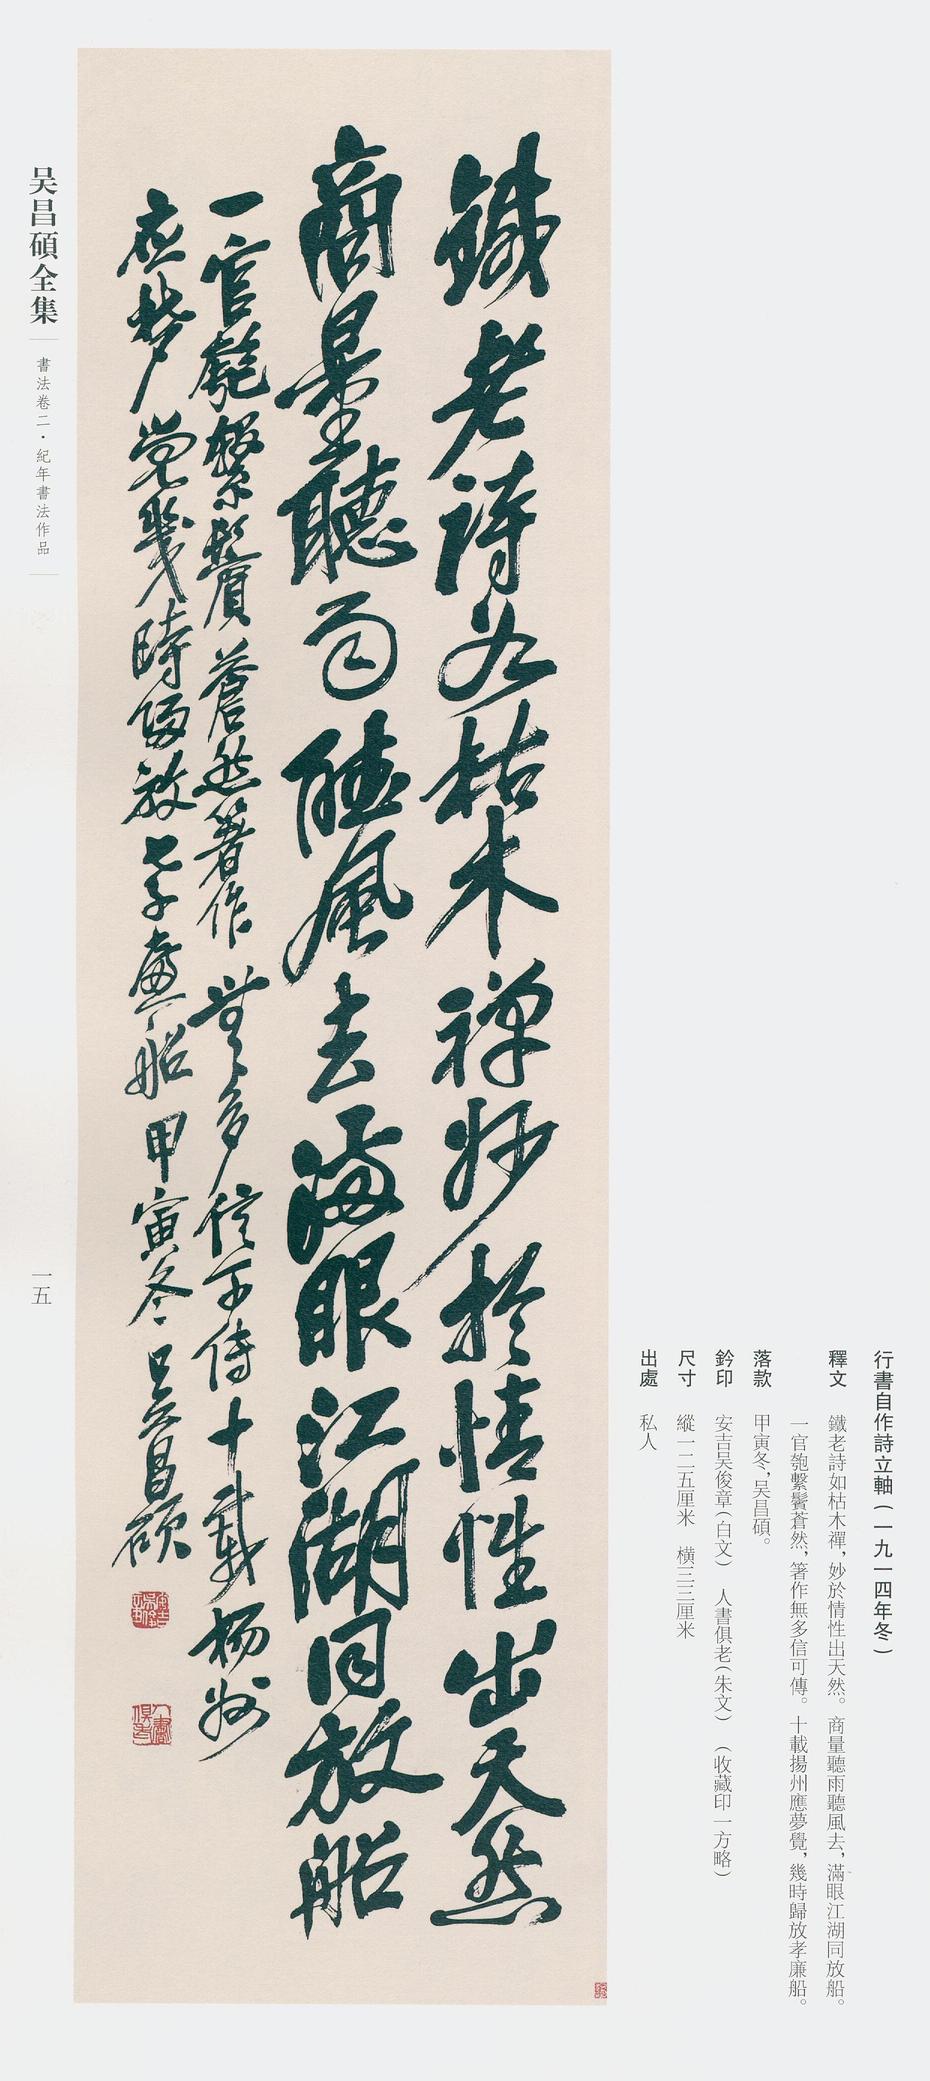 行書自作詩立軸（一九一四年冬）
釋文　鐵老詩如枯木禪，妙於情性出天然。商量聽雨聽風去，滿眼江湖同放船。
一官匏繫鬢蒼然，箸作無多信可傳。十載揚州應夢覺，幾時歸放孝廉船。
落款　甲寅冬，吴昌碩。
鈐印　安吉吴俊章（白文）　人書俱老（朱文）　（收藏印一方略）
尺寸　縱一二五厘米　橫三三厘米
出處　私人
鐵老詩如枯木禪妙於情性出天然
商量聽雨聽風去滿眼江湖同放船
一官匏繫鬢蒼然箸作無多信可傳十載揚州
應夢覺幾時歸放孝廉船甲寅冬吴昌碩
人書俱老
吴昌碩全集
書法卷二·紀年書法作品
一五